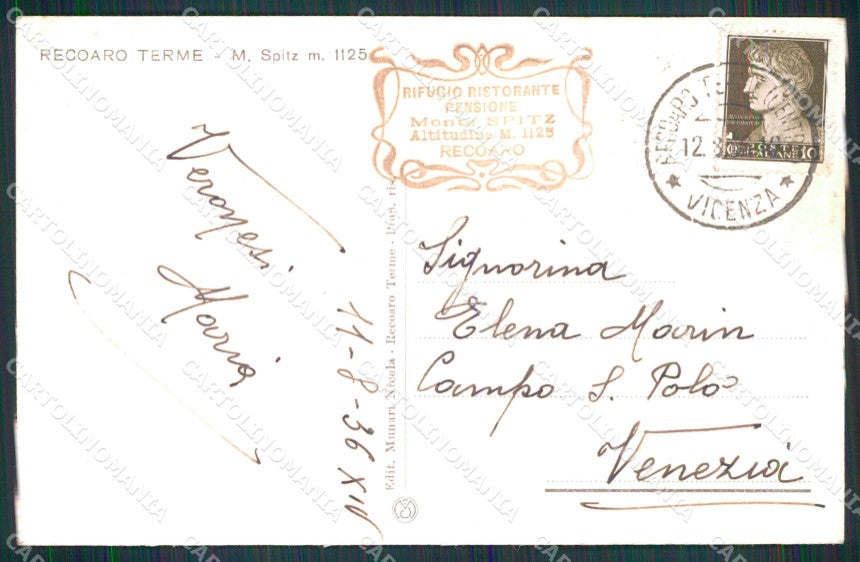 RECOARO TERME - M. Spitz m. 1125
RIFUGIO RISTORANTE
PENSIONE
Monte SPITZ
Altitudine M. 1125
RECOARO
POSTE
ITALIANE 10
RECOARO TERME
12.8
VICENZA
Veronesi
Maria
11-8-36 XIV
Edit. Munari Nicola - Recoaro Terme - Prop. ris.
Signorina
Elena Marin
Campo S. Polo
Venezia
CARTOLINOMANIA